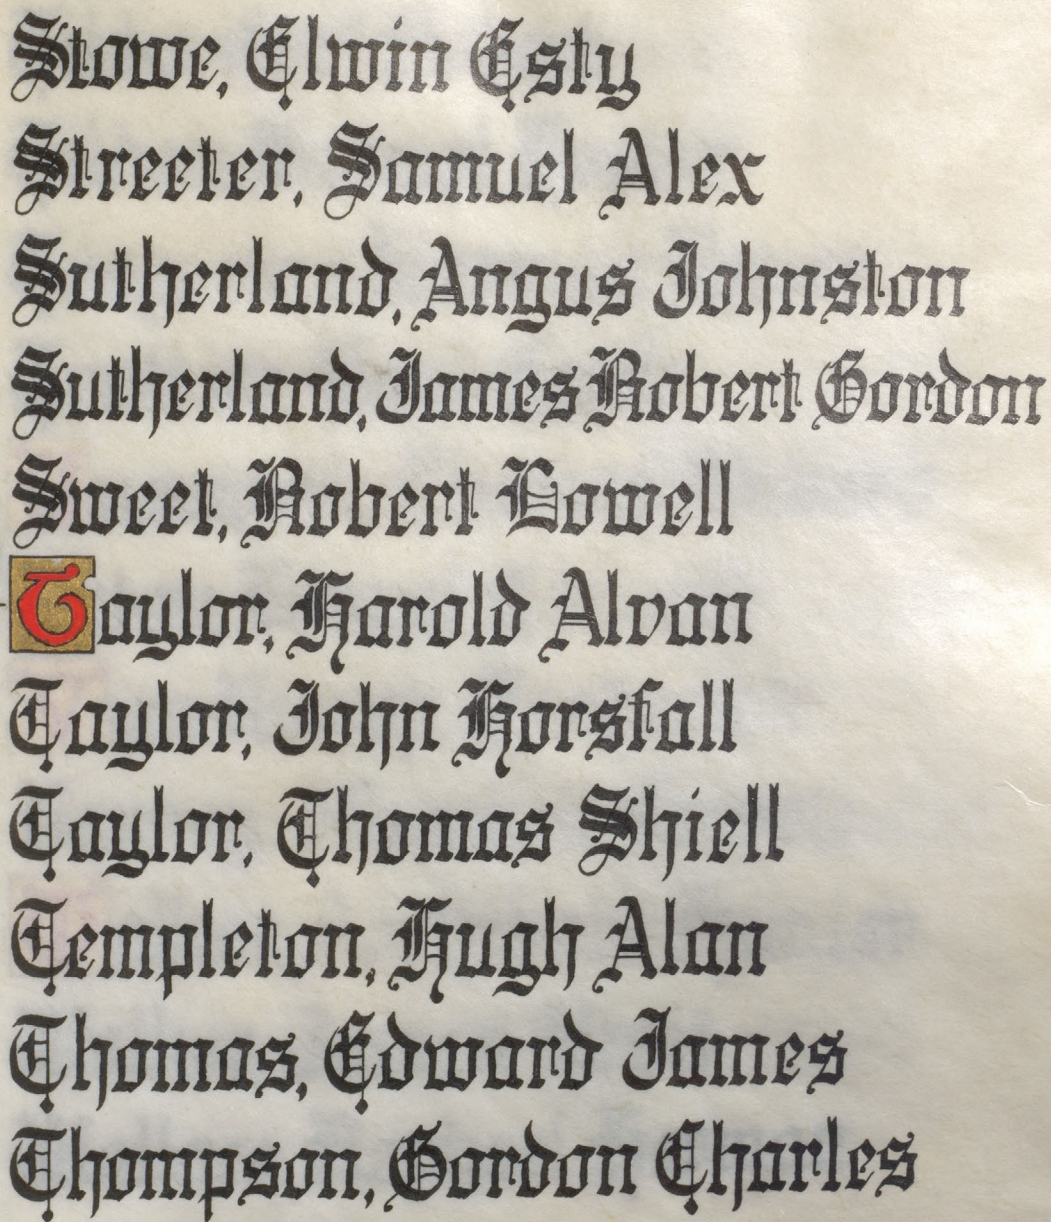 Stowe, Elwin Esty
Streeter, Samuel Alex
Sutherland, Angus Johnston
Sutherland, James Robert Gordon
Sweet, Robert Lowell
Taylor, Harold Alvan
Taylor, John Horsfall
Taylor, Thomas Shiell
Templeton, Hugh Alan
Thomas, Edward James
Thompson, Gordon Charles